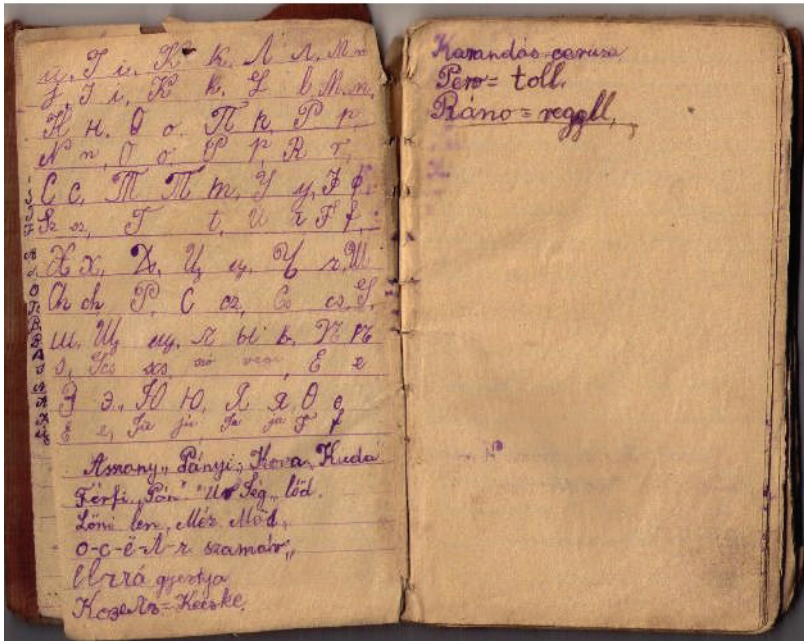 й, I i, К к, Л л, М м
j, I i, K k, L l, M m,
Н н, О о, П п, Р р,
N n, O o, P p, R r,
С с, Т Т т, У у, Ф ф,
Sz sz, T t, U u F f,
Х х, Ц ц, Ч ч, Ш
Ch ch C cz, Cs cs, S,
ш, Щ щ, ъ ы ь, Ѣ ѣ
s, scs szó vége, E e
Э э, Ю ю, Я я, Ѳ ѳ
E e, Ju ju, Ja ja F f
Asszony „Pányi„ Kova, Kudá
Férfi „Pán" Ur Ség„ lőd.
Löni len, Méz Möd„
o-c-ë-л-ъ szamár„
gyertya
Козелъ=Kecske,
Karandás ceruza
Pero= toll.
Ráno= reggel,